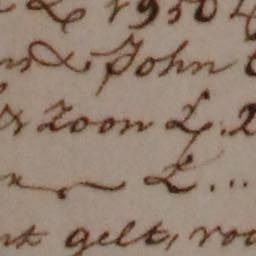 £ 1950
& John
& Zoon £. 2
£ ...
gelt, voo